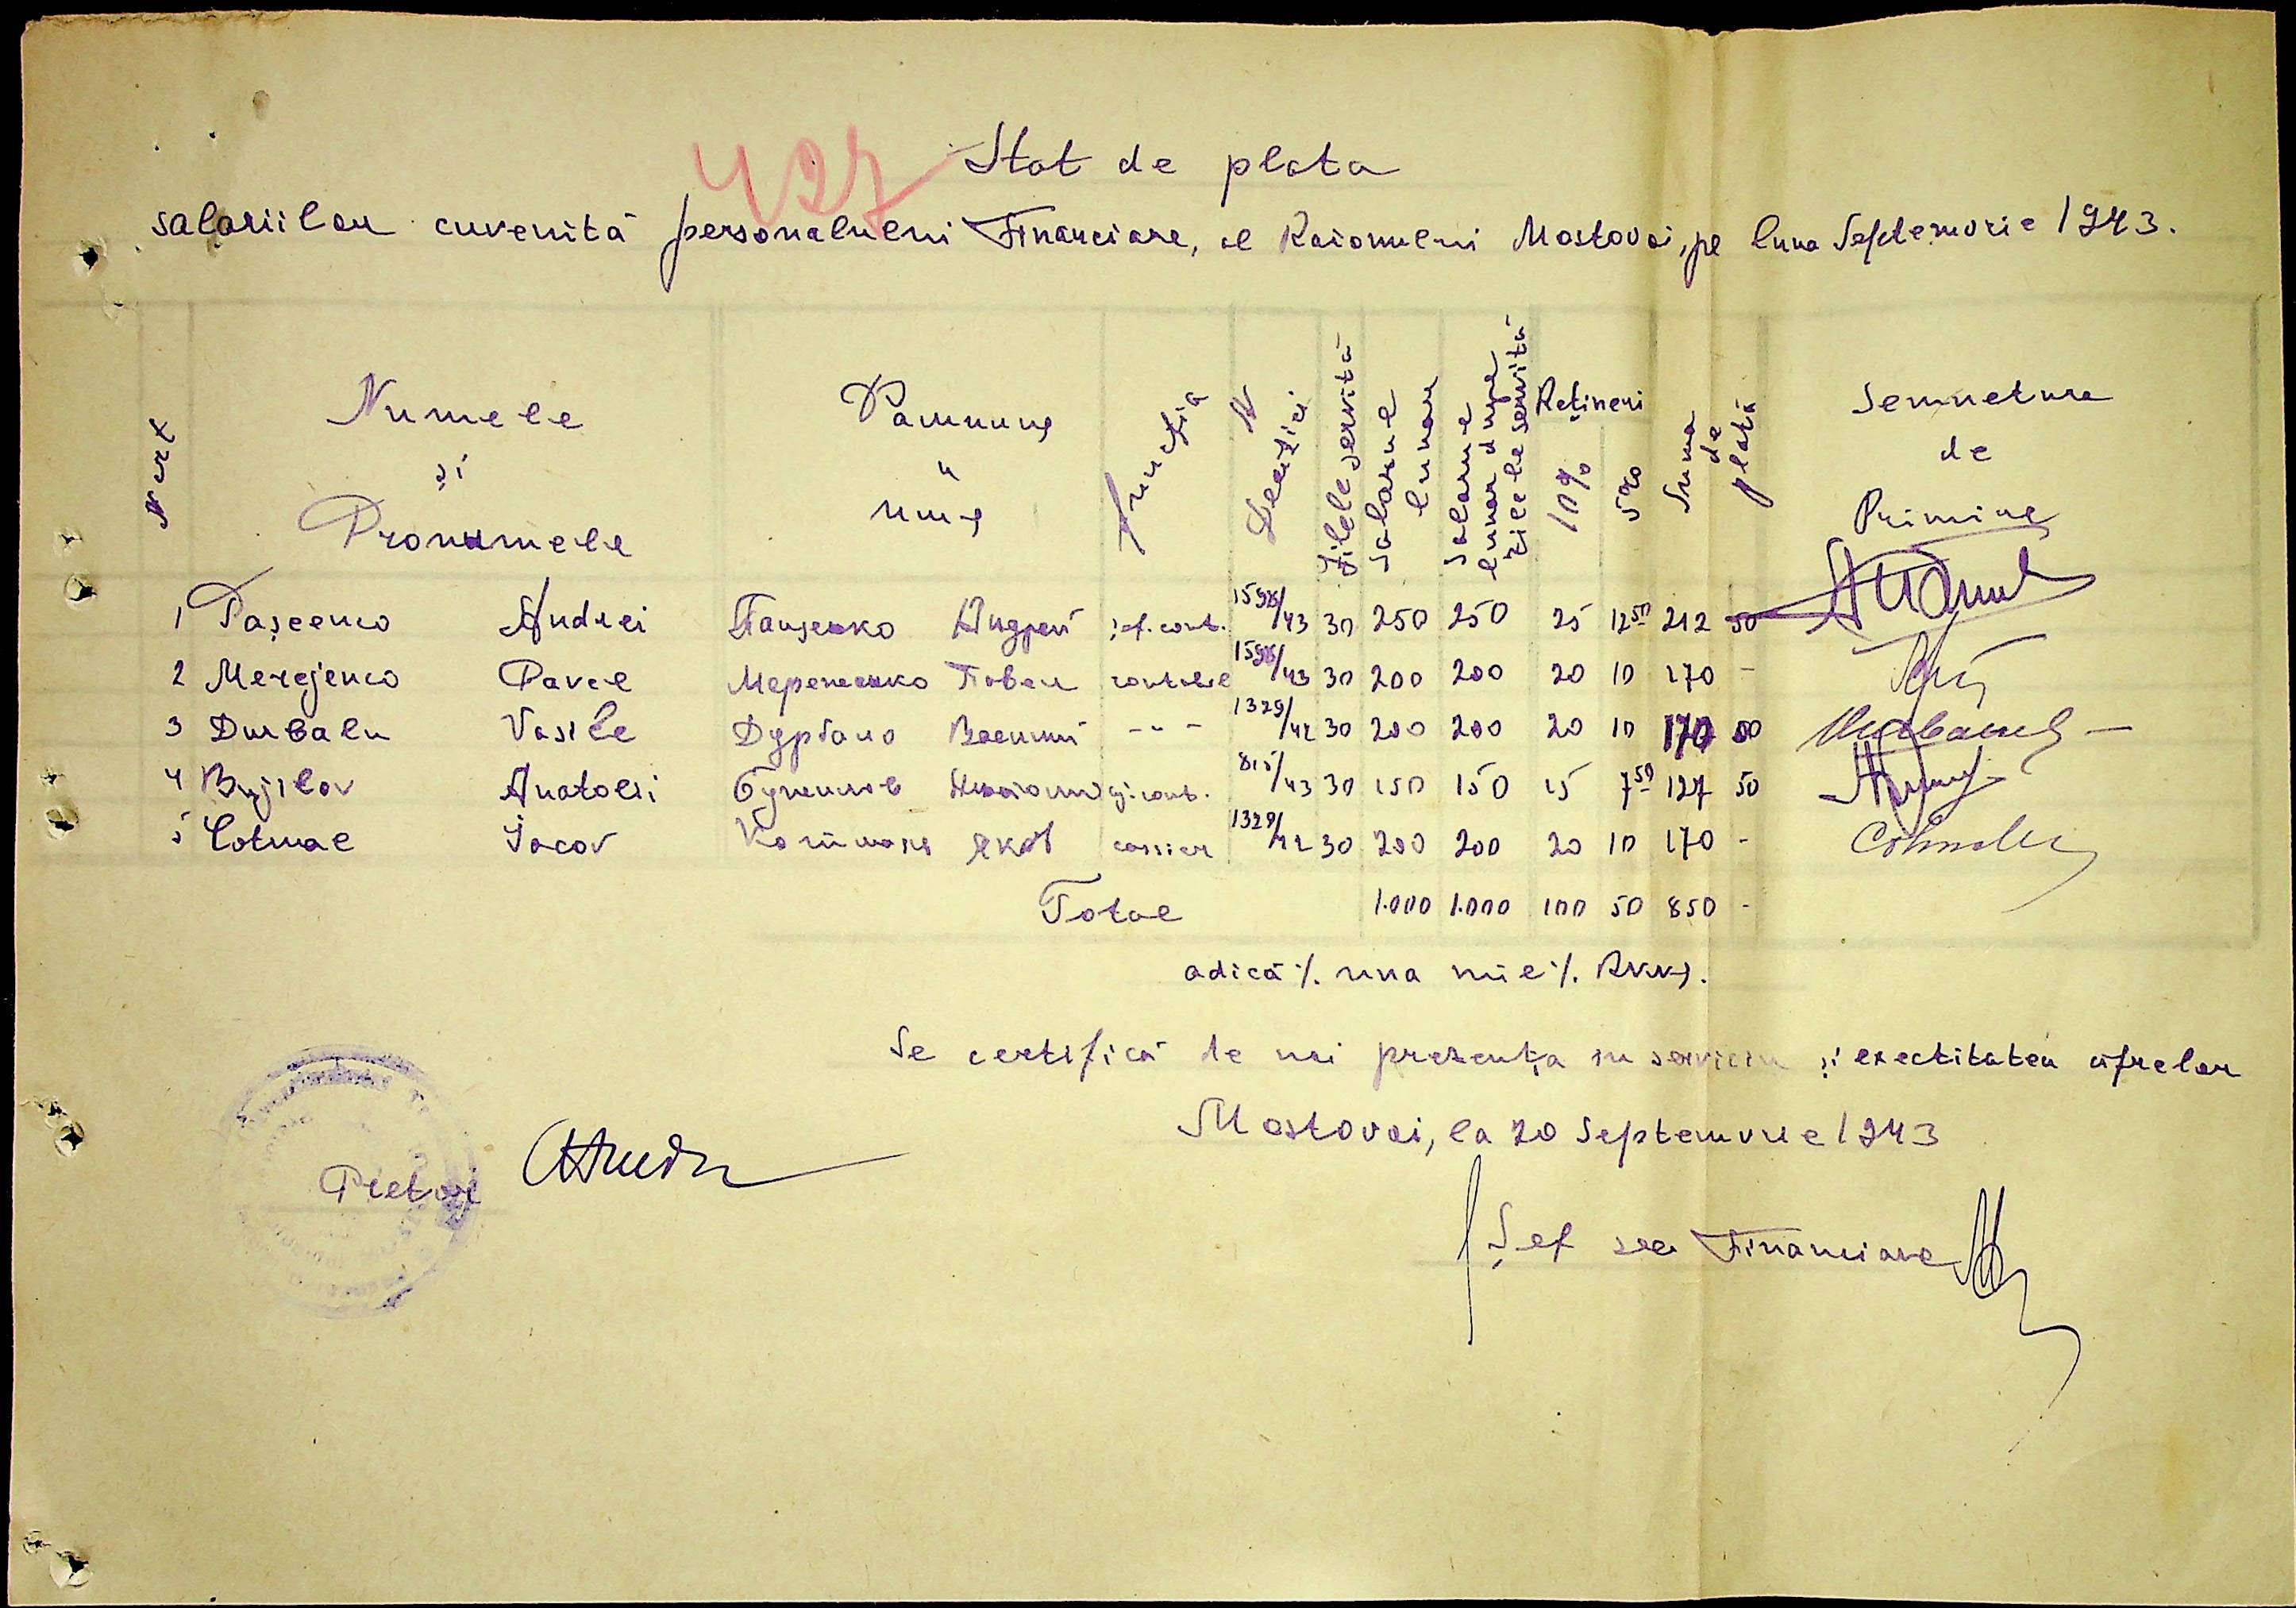 427
Stat de plata
salariilor cuvenită personalului Financiare, al Raionului Mostovoi, pe luna Septemvrie 1943.
N crt
Numele
și
Pronumele
Фамилия
и
имя
funcția
N
Deciziei
Zilele servită
Salarul
lunar
Salarul
lunar dupe
zilele servită
Rețineri
10%
5%
Suma
de
plată
Semnetura
de
Primire
1 Pașcenco Andrei Пащенко Андрей șef. cont. 1598/43 30 250 250 25 12 50 212 50
2 Merejenco Pavel Мереженко Павел contabil 1598/43 30 200 200 20 10 170 -
3 Durbalu Vasile Дурбало Василий - " - 1329/42 30 200 200 20 10 170 00
4 Bujilov Anatolii Бужилов Анатолий aj. cont. 815/43 30 150 150 15 7 50 127 50
5 Cotmal Iacov яков cassier 1329/42 30 200 200 20 10 170 -
Total 1.000 1.000 100 50 850 -
adică %. una mie %. RKKS.
Se certifică de noi prezența în serviciu și exectitatea cifrelor
Mostovoi, la 20 Septemvrie 1943
Pretor
Șef sec Financiare